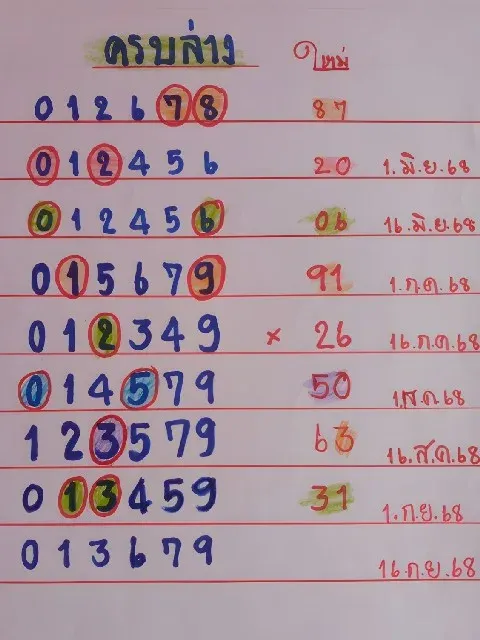 ครบล่าง ใหม่
0 1 2 6 7 8 87
0 1 2 4 5 6 20 1.มิ.ย.68
0 1 2 4 5 6 06 16.มิ.ย.68
0 1 5 6 7 9 91 1.ก.ค.68
0 1 2 3 4 9 × 26 16.ก.ค.68
0 1 4 5 7 9 50 1.ส.ค.68
1 2 3 5 7 9 63 16.ส.ค.68
0 1 3 4 5 9 31 1.ก.ย.68
0 1 3 6 7 9 16.ก.ย.68